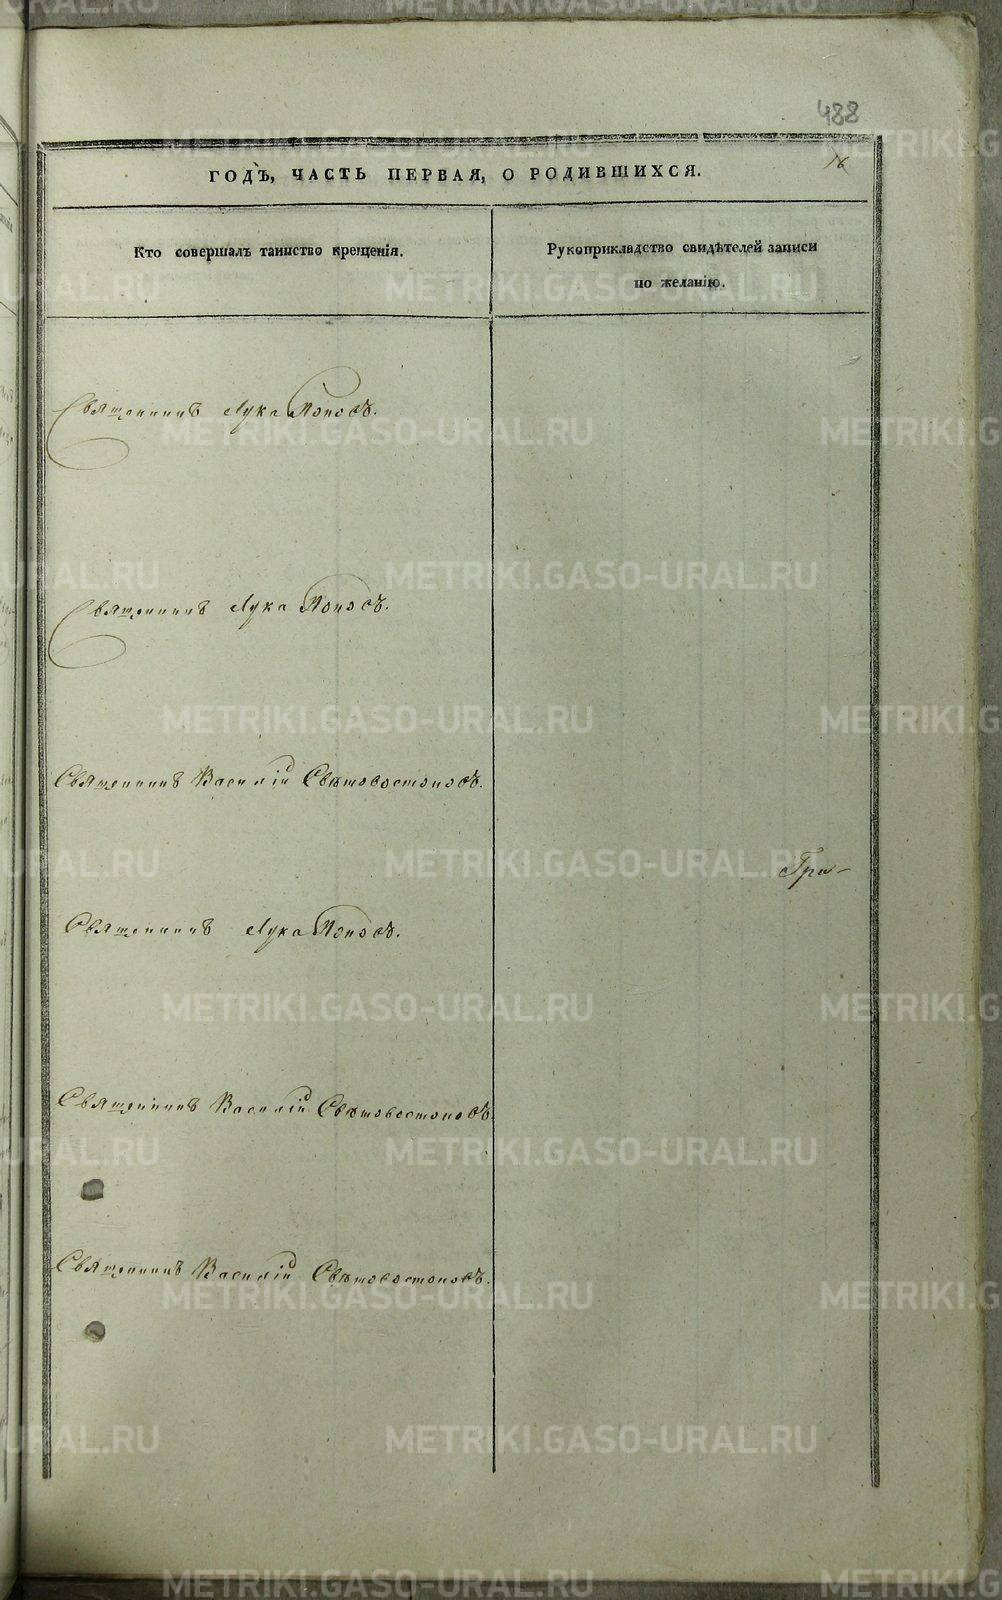 488
16
ГОДЪ, ЧАСТЬ ПЕРВАЯ, О РОДИВШИХСЯ.
Кто совершалъ таинство крещенія.
Рукоприкладство свидѣтелей записи
по желанію.
Священникъ Лука Поповъ.
Священникъ Лука Поповъ.
Священникъ Василій Свѣтовостоковъ.
Гри-
Священникъ Лука Поповъ.
Священникъ Василій Свѣтовостоковъ.
Священникъ Василій Свѣтовостоковъ.
METRIKI.GASO-URAL.RU